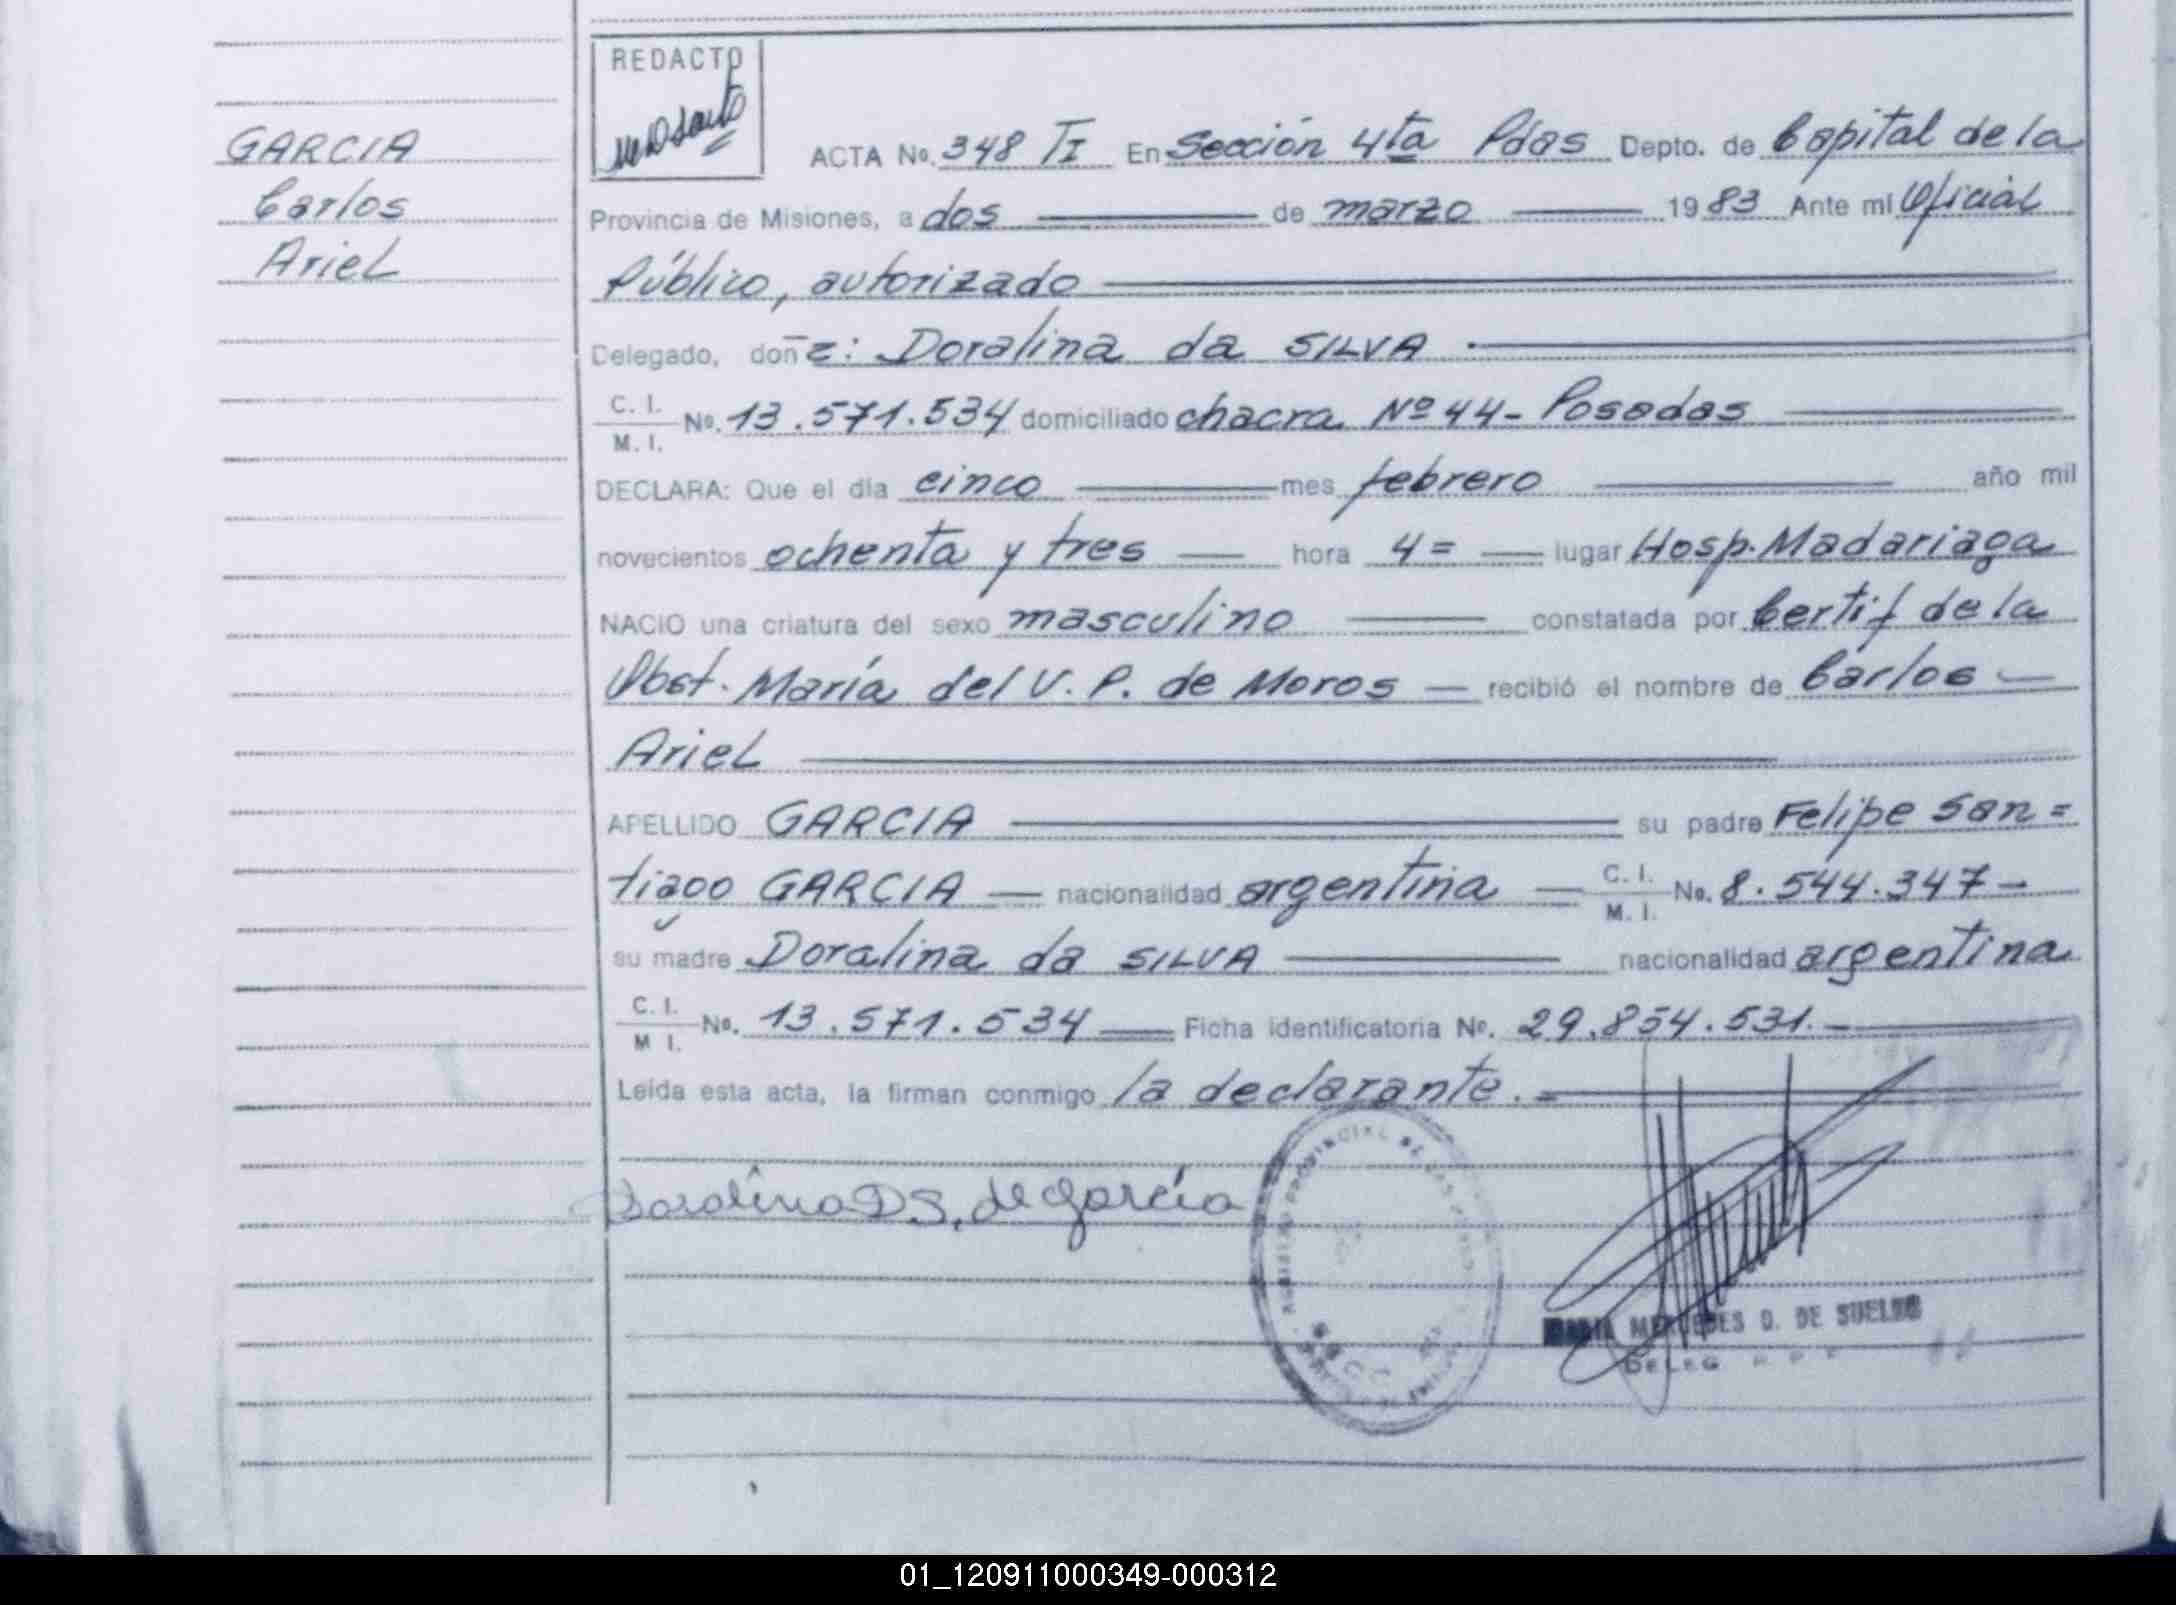 REDACTO
GARCIA
Carlos
Ariel
ACTA No. 348 TI En Sección 4ta Pdas Depto. de Capital de la
Provincia de Misiones, a dos de marzo 1983 Ante mi Oficial
Público, autorizado
Delegado, doña: Doralina da SILVA
C. I.
M. I. No. 13.571.534 domiciliado chacra Nº 44- Posadas
DECLARA: Que el día cinco mes febrero año mil
novecientos ochenta y tres hora 4= lugar Hosp. Madariaga
NACIO una criatura del sexo masculino constatada por Certif de la
Obst. María del V. P. de Moros recibió el nombre de Carlos
Ariel
APELLIDO GARCIA su padre Felipe San=
tiago GARCIA nacionalidad argentina C. I. M. I. No. 8.544.347-
su madre Doralina da SILVA nacionalidad argentina
C. I.
M I. No. 13.571.534 Ficha identificatoria No. 29.854.531.-
Leída esta acta, la firman conmigo la declarante.=
Doralina D S. de Garcia
MARIA MERCEDES D. DE SUELDO
DELEG
01_120911000349-000312